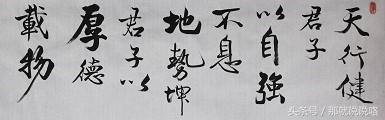 天行健
君子
以自強
不息
地勢坤
君子以
厚德
載物
头条号/那就说说咯